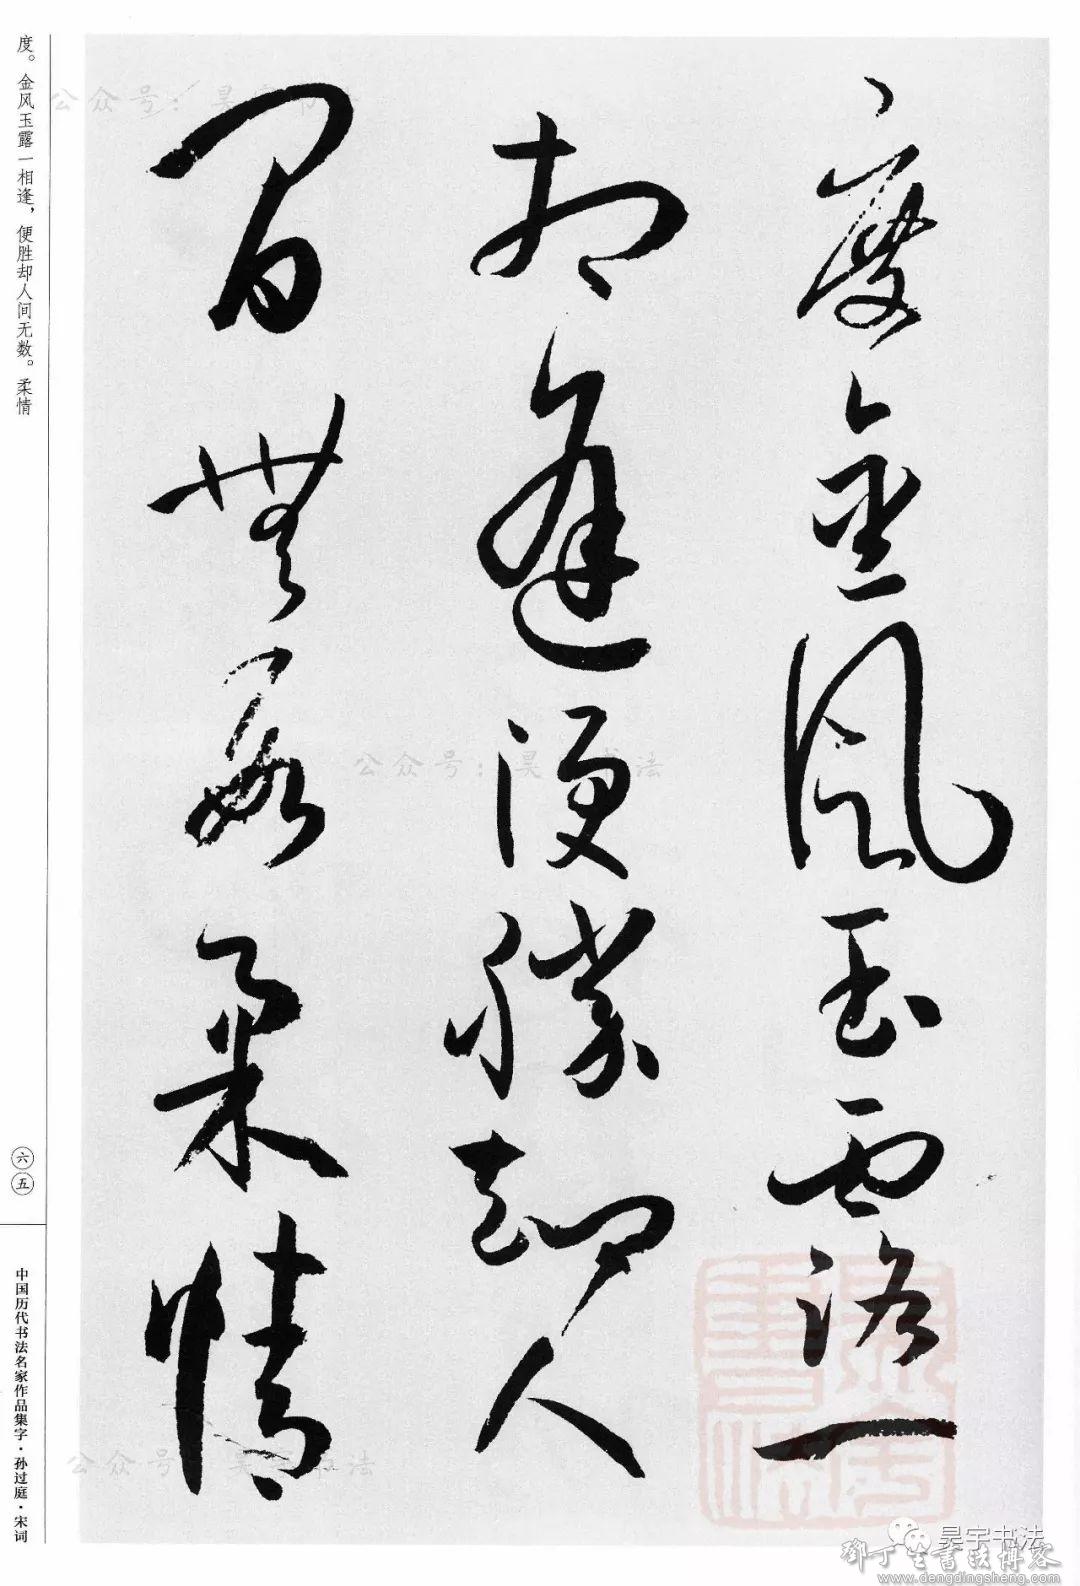 度金风玉露一
相逢便勝却人
间無數柔情
度。金风玉露一相逢，便胜却人间无数。柔情
六五
中国历代书法名家作品集字·孙过庭·宋词
公众号：昊宇书法
公众号：昊宇书法
公众号：昊宇书法
昊宇书法
鄧丁生書法博客
www.dengdingsheng.com